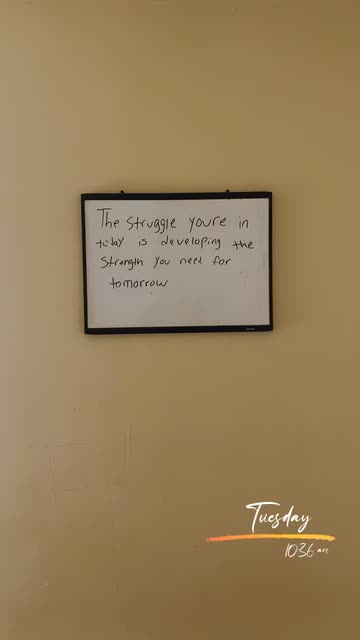 The Struggle you're in
today is developing the
Strength you need for
tomorrow
Tuesday
1036 am